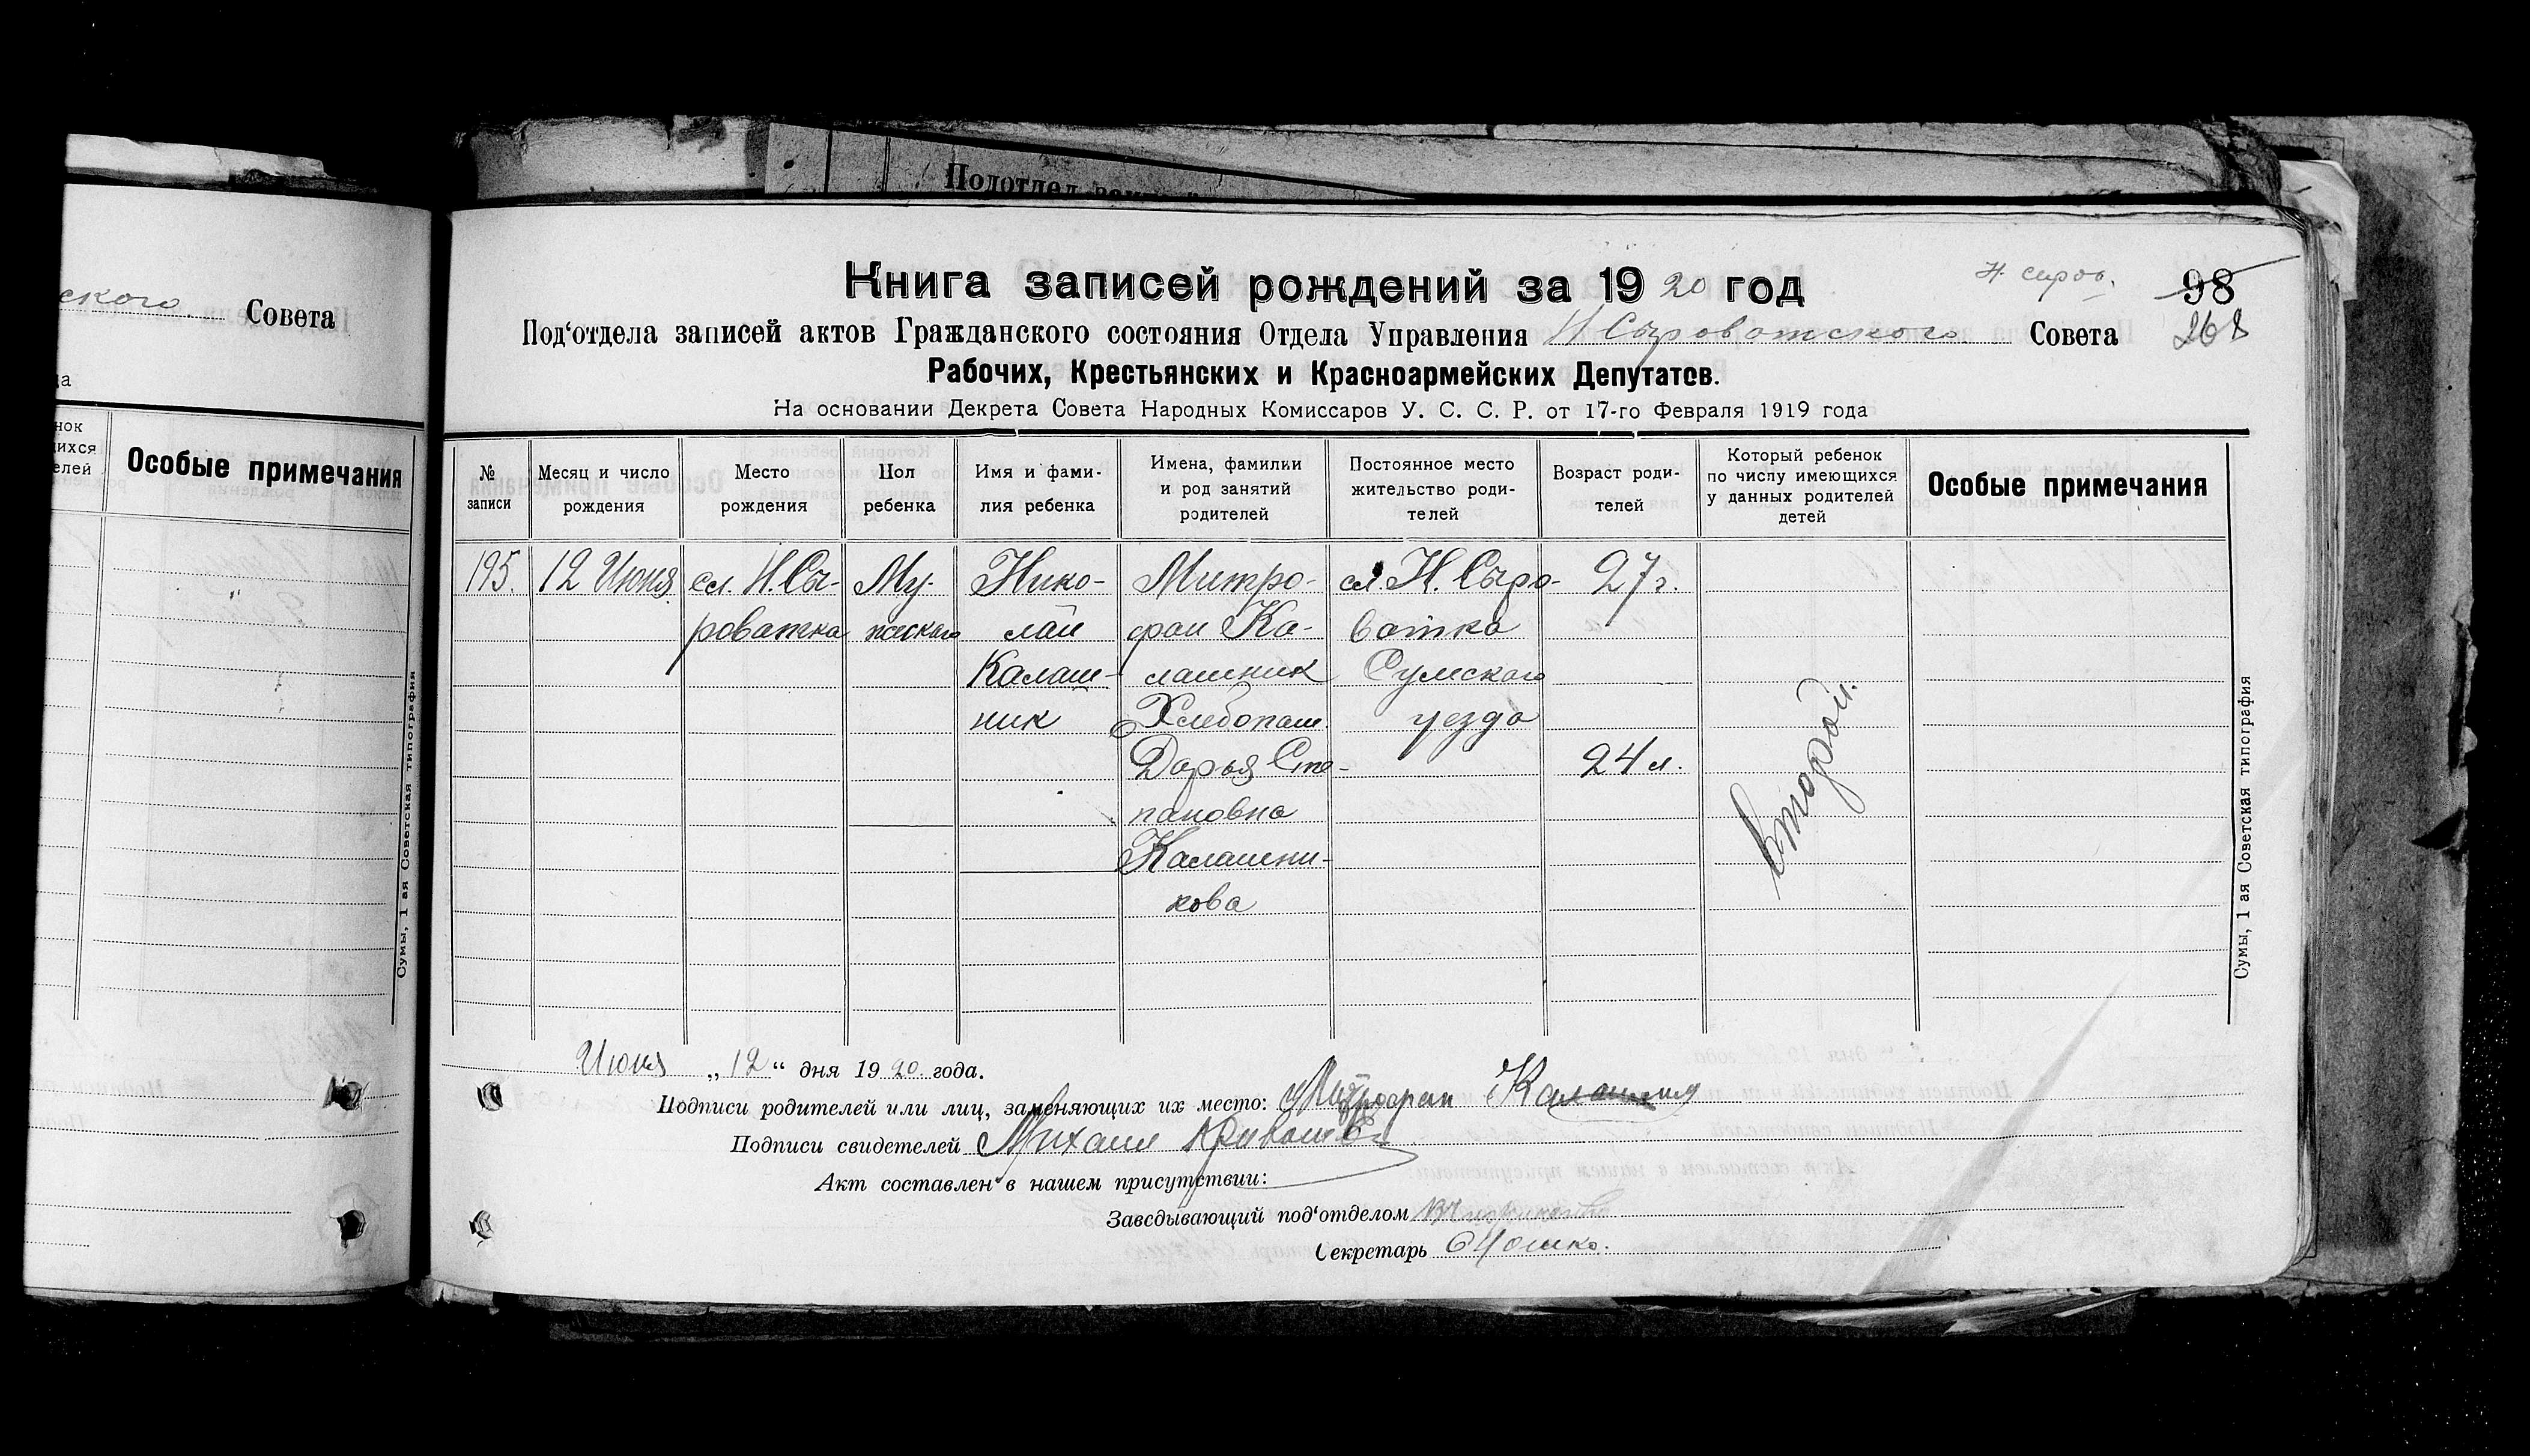 Подотдел
ского Совета
да
нок
щихся
елей
Особые примечания
Сумы, 1 ая Советская типография
Книга записей рождений за 1920 год
Н. сиров.
98
268
Под'отдела записей актов Гражданского состояния Отдела Управления Н Сыроватского Совета
Рабочих, Крестьянских и Красноармейских Депутатов.
На основании Декрета Совета Народных Комиссаров У. С. С. Р. от 17-го Февраля 1919 года
№ записи
Месяц и число рождения
Место рождения
Пол ребенка
Имя и фами-
лия ребенка
Имена, фамилии
и род занятий
родителей
Постоянное место
жительство роди-
телей
Возраст роди-
телей
Который ребенок
по числу имеющихся
у данных родителей
детей
Особые примечания
195.
12 Июня
сл. Н. Сы-
роватка
Му-
жескаго
Нико-
лай
Калаш-
ник
Митро-
фан Ка-
лашник
Хлебопаш.
Дарья Сте-
пановна
Калашни-
кова
сл. Н. Сыро-
ватка
Сумскаго
уезда
27 г.
24 л.
второй.
Сумы, 1 ая Советская типография
Июня „12“ дня 1920 года.
Подписи родителей или лиц, заменяющих их место: Митрофан
Подписи свидетелей Михаил
Акт составлен в нашем присутствии:
Заведывающий под'отделом
Секретарь